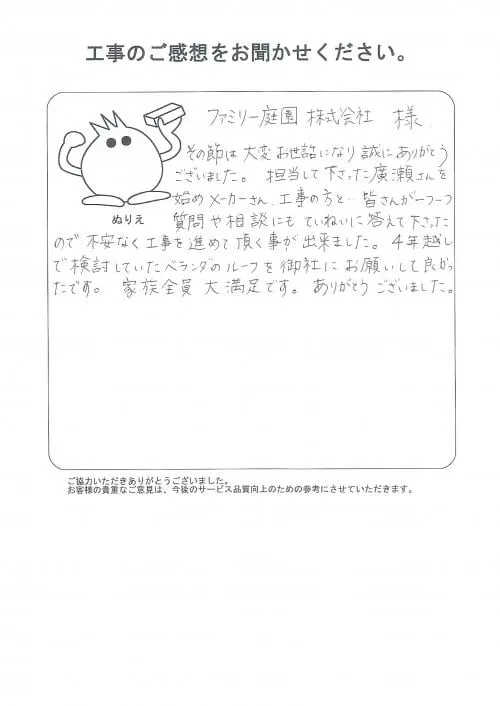 工事のご感想をお聞かせください。
ファミリー庭園 株式会社 様
その節は大変お世話になり誠にありがとう
ございました。 担当して下さった廣瀬さんを
始めメーカーさん、工事の方と…皆さんが一つ一つ
ぬりえ
質問や相談にもていねいに答えて下さった
ので不安なく工事を進めて頂く事が出来ました。4年越し
で検討していたベランダのルーフを御社にお願いして良かっ
たです。 家族全員 大満足です。 ありがとうございました。
ご協力いただきありがとうございました。
お客様の貴重なご意見は、今後のサービス品質向上のための参考にさせていただきます。